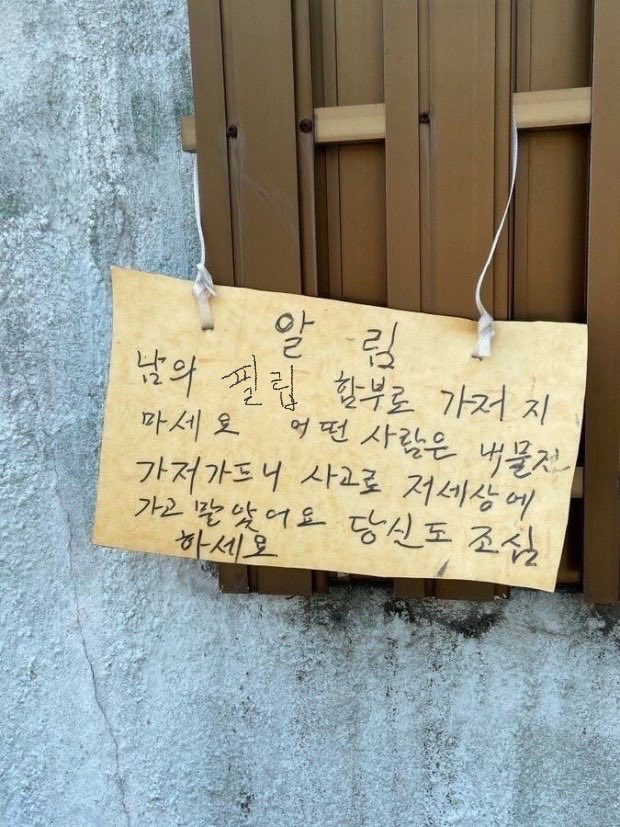 알 림
남의 필립 함부로 가저지
마세요 어떤 사람은 내물건
가저가드니 사고로 저세상에
가고 말앗어요 당신도 조심
하세요